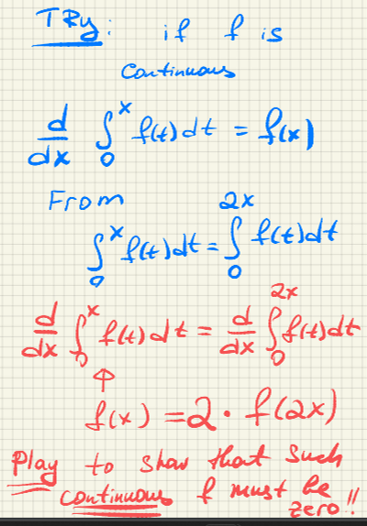 TRY: if f is
continuous
d/dx ∫₀ˣ f(t)dt = f(x)
From
∫₀ˣ f(t)dt = ∫₀²ˣ f(t)dt
d/dx ∫₀ˣ f(t)dt = d/dx ∫₀²ˣ f(t)dt
⇧
f(x) = 2 · f(2x)
Play to show that such
continuous f must be
zero!!